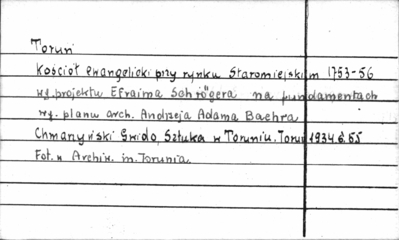 Toruń
Kościół ewangelicki przy rynku Staromiejskim 1753-56
wg. projektu Efraima Schrögera na fundamentach
wg. planu arch. Andrzeja Adama Baehra
Chmarzyński Gwido, Sztuka w Toruniu. Toruń 1934. s. 65
Fot. w Archiw. m. Torunia.